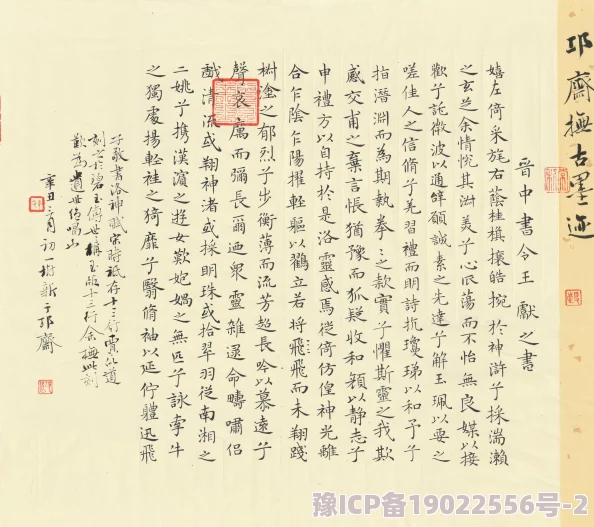 邛齋撫古墨迹
晉中書令王獻之書
嬉左倚采旄右蔭桂旗攘皓捥於神滸兮採湍瀨
之玄芝余情悅其淑美兮心振蕩而不怡無良媒以接
歡兮託微波以通辤願誠素之先達兮解玉珮以要之
嗟佳人之信脩兮羌習禮而明詩抗瓊珶以和予兮
指潛淵而為期執拳之款實兮懼斯靈之我欺
感交甫之棄言悵猶豫而狐疑收和顏以静志兮
申禮方以自持於是洛靈感焉徙倚仿偟神光離
合乍陰乍陽擢輕軀以鶴立若將飛飛而未翔踐
椒塗之郁烈兮步衡薄而流芳超長吟以慕遠兮
聲哀厲而彌長爾迺衆靈雜遝命疇嘯侶
戲清流或翔神渚或採明珠或拾翠羽從南湘之
二姚兮攜漢濱之遊女歎匏媧之無匹兮詠牽牛
之獨處揚輕袿之猗靡兮翳脩袖以延佇體迅飛
子敬書洛神賦宋時祗存十三行賈似道
刻之於碧玉傳世稱玉版十三行余撫此刻
辛丑六月初一樹新於邛齋
豫ICP备19022556号-2